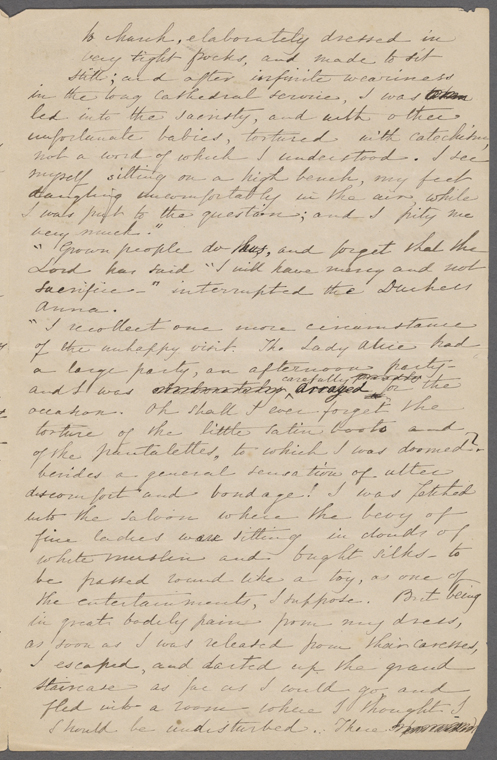 to church, elaborately dressed in
very tight frocks, and made to sit
still; and after infinite weariness
in the long Cathedral service, I was taken
led into the sacristy, and with other
unfortunate babies, tortured with catechism,
not a word of which I understood. I see
myself sitting on a high bench, my feet
dangling uncomfortably in the air, while
I was put to the question; and I pity me
very much."
"Grown people do thus, and forget that the
Lord has said "I will have mercy and not
sacrifice—" interrupted the Duchess
Anna.
"I recollect one more circumstance
of the unhappy visit. The Lady Alice had
a large party, an afternoon party—
and I was carefully arrayed for the
occasion. Oh shall I ever forget the
torture of the little satin boots and
of the pantalettes, to which I was doomed?
besides a general sensation of utter
discomfort and bondage! I was fetched
into the saloon where the bevy of
fine ladies were sitting in clouds of
white muslin and bright silks— to
be passed round like a toy, as one of
the entertainments, I suppose. But being
in great bodily pain from my dress,
as soon as I was released from their caresses,
I escaped, and darted up the grand
staircase as far as I could go, and
fled into a room where I thought I
should be undisturbed. There